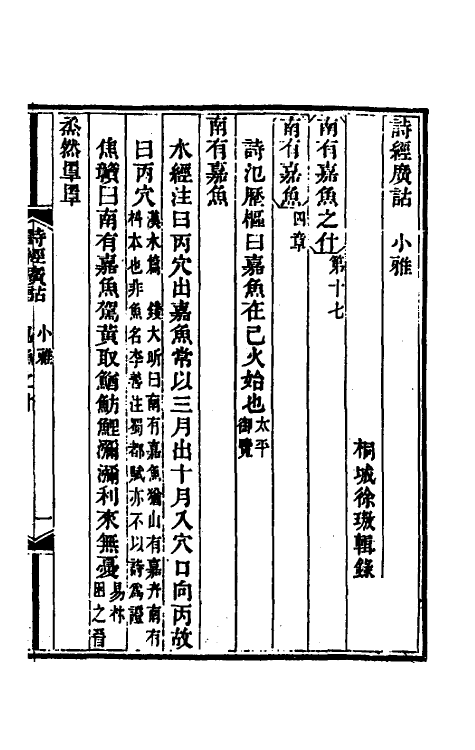 詩經廣詁　小雅
桐城徐璈輯錄
南有嘉魚之什第十七
南有嘉魚四章
詩氾歷樞曰嘉魚在已火始也太平御覽
南有嘉魚
水經注曰丙穴出嘉魚常以三月出十月入穴口向丙故
曰丙穴漢水篇　錢大昕曰南有嘉魚猶山有嘉卉南有
樛木也非魚名李善注蜀都賦亦不以詩爲證
焦贛曰南有嘉魚駕黃取鰌魴鯉瀰瀰利來無憂易林困之晉
烝然罩罩
詩經廣詁　小雅　一